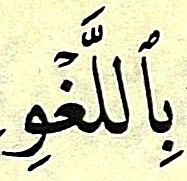 بِٱللَّغۡوِ